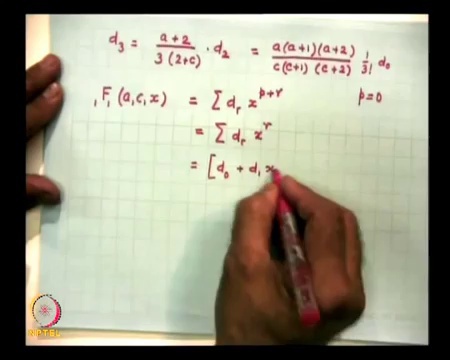 d₃ = a+2 / 3(2+c) · d₂ = a(a+1)(a+2) / c(c+1)(c+2) 1/3! d₀
₁F₁(a,c,x) = Σ dᵣ x^(p+r) p=0
= Σ dᵣ x^r
= [d₀ + d₁ x
NPTEL